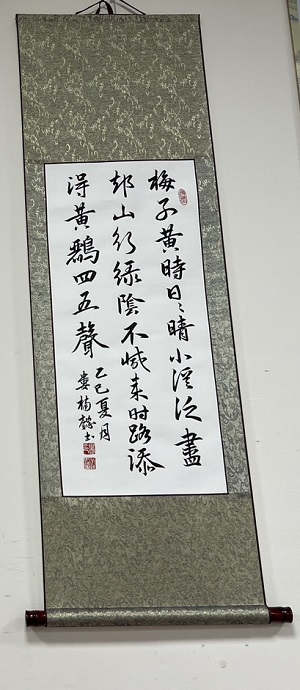 梅子黄時日〻晴小溪泛盡
却山行緑陰不減来时路添
得黄鸝四五聲
乙巳夏月
婁楠懿书